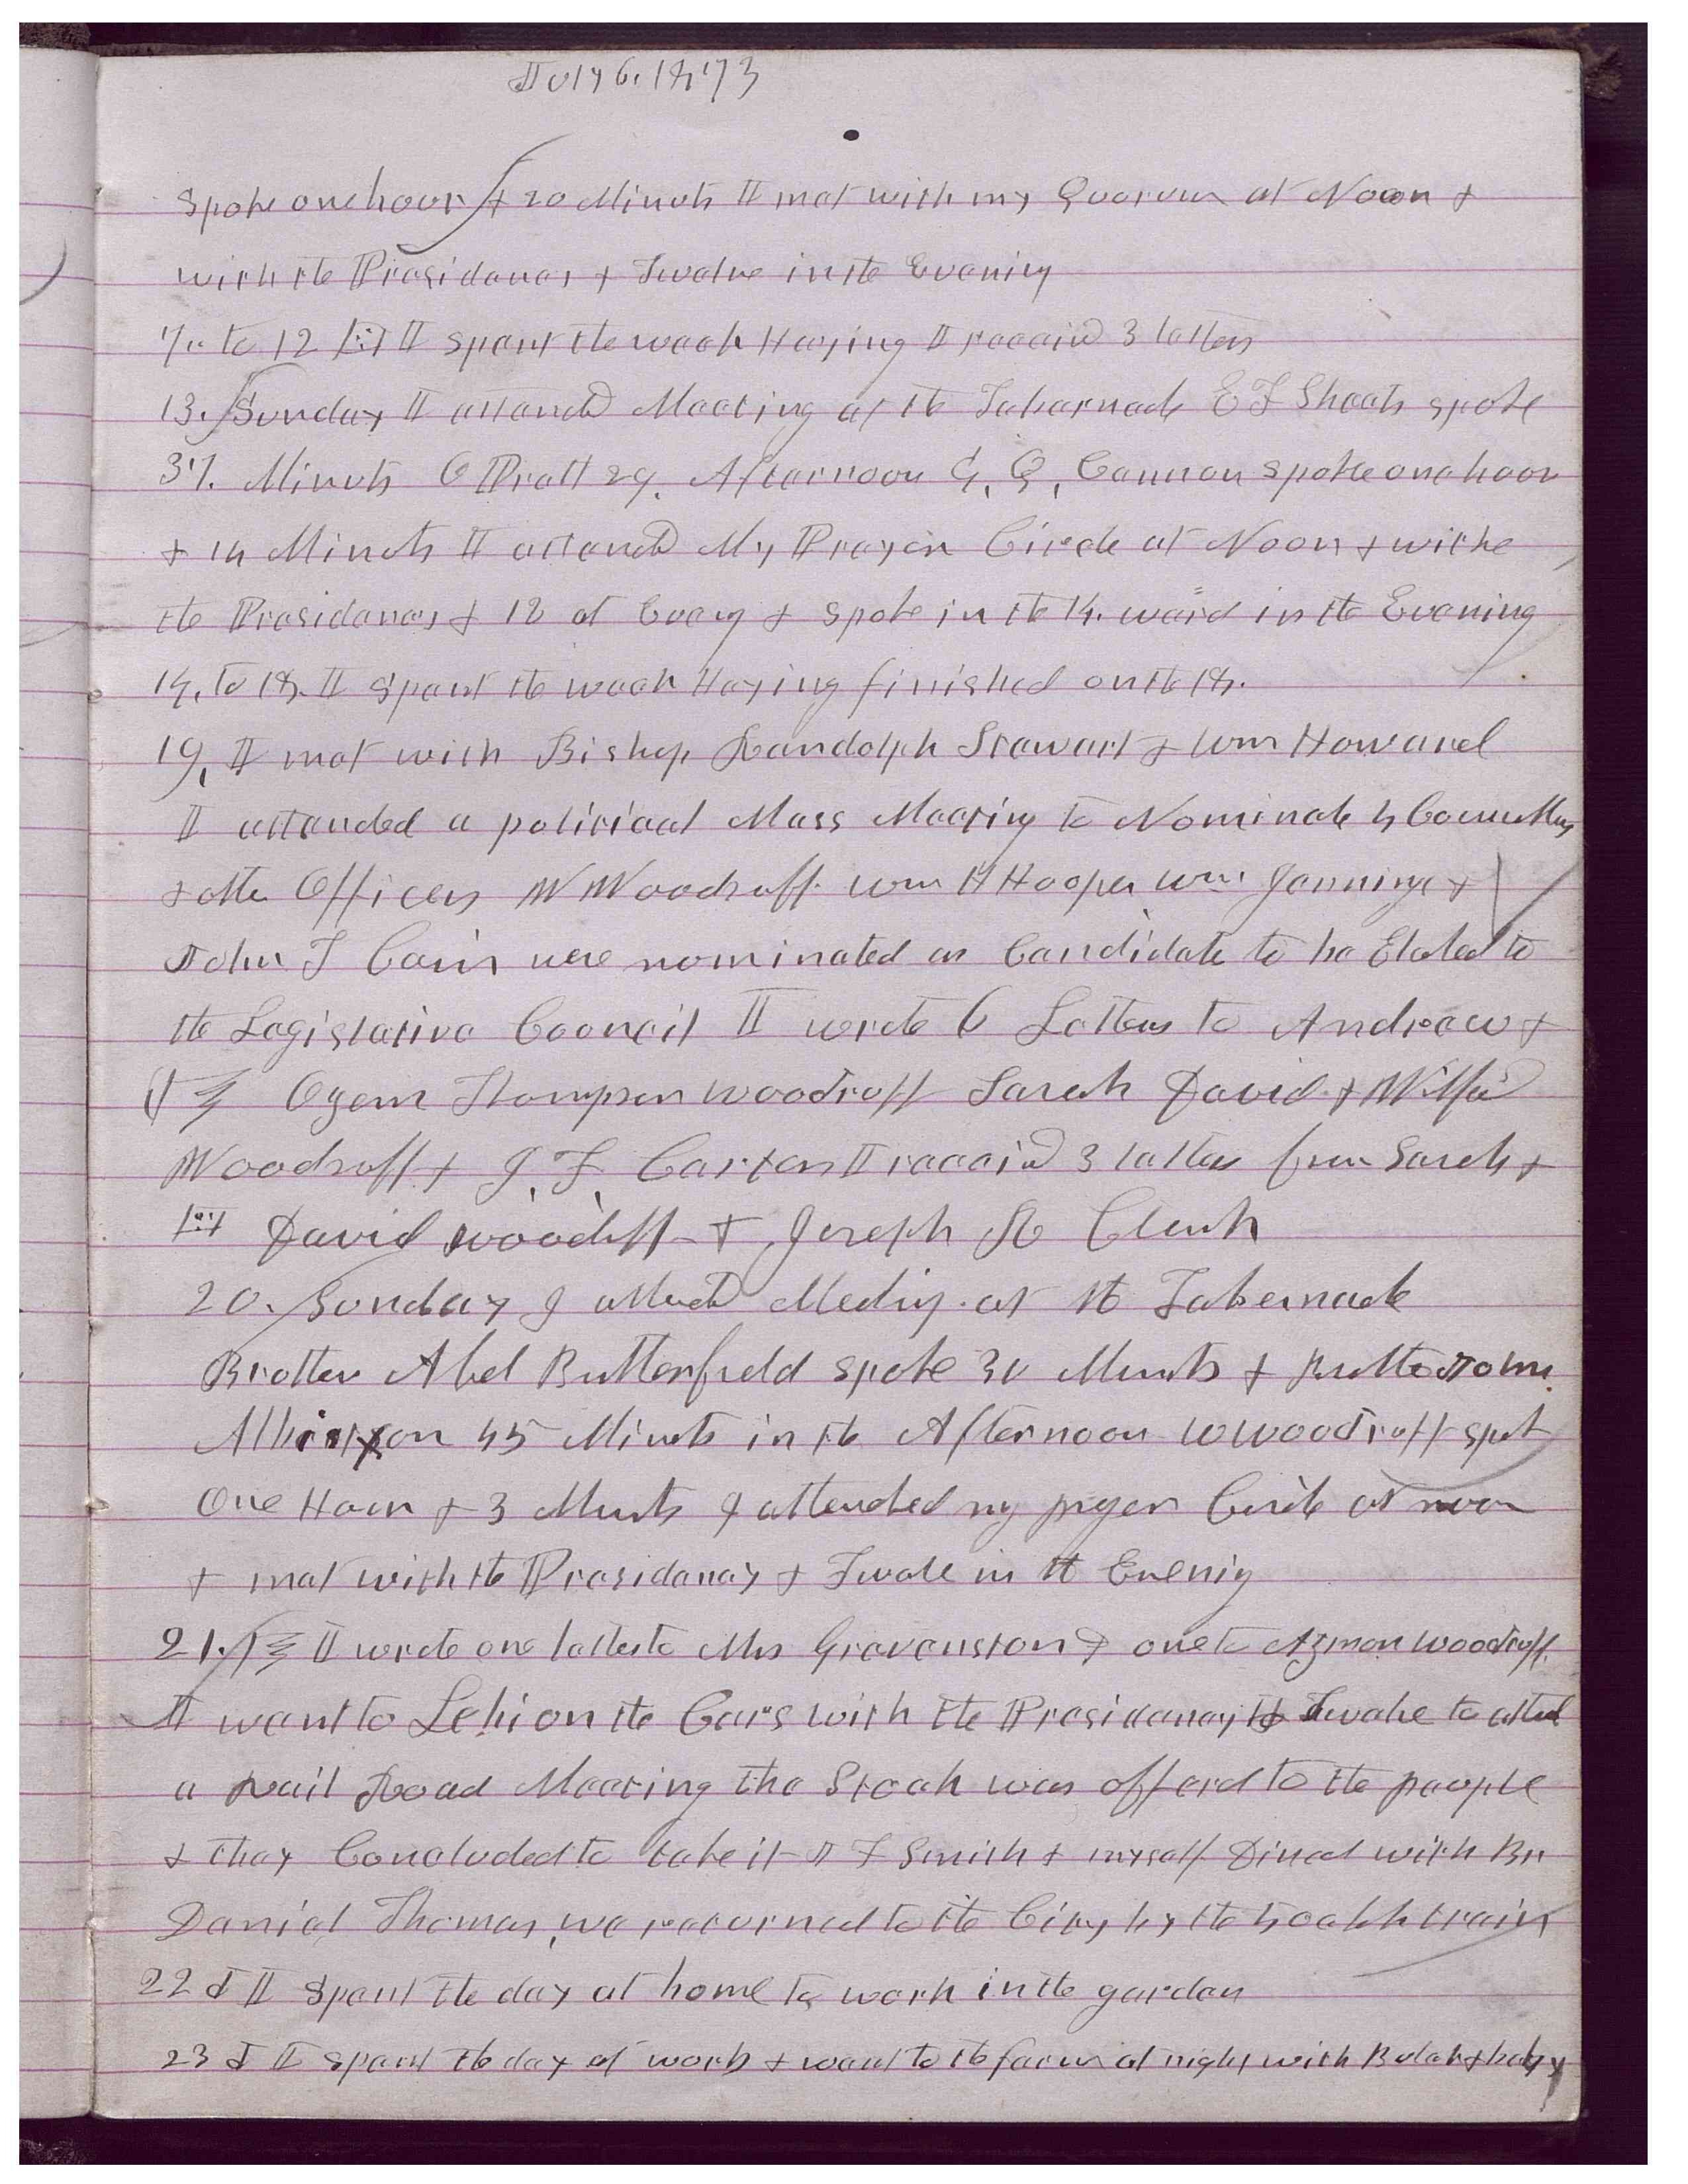 July 6, 1873
spoke one hour & 20 Minuts I met with my Quorum at Noon &
with the Presidency & Twelve in the Evening
7 to 12 I spent the week Haying I receivd 3 letters
13. Sunday I attended Meeting at the Tabernacle E F Sheets spoke
37. Minuts O Pratt 29. Afternoon G, Q, Cannon spoke one hour
& 14 Minuts I attended My Prayer Circle at Noon & withe
the Presidency & 12 at & spoke in the 14. ward in the Evening
14, to 18. I spent the week Haying finished on the 18.
19, I met with Bishop Randolph Stewart & Wm Howard
I attended a political Mass Meeting to Nominate 4
& other Officers W Woodruff. Wm H Hooper Wm Jennings &
John T Cain were nominated as Candidate to be Elected to
the Legislative Council I wrote 6 Letters to Andrew &
Ozem Thompson Woodruff Sarah David & Wilford
Woodruff & J, F, Carter I receivd 3 letters from Sarah &
David Woodruff & Joseph
20. Sunday I attend Meeting at the Tabernacle
Brother Abel Butterfield spoke 30 Minuts & Brother John
Albiston 45 Minuts in the Afternoon W Woodruff spok
One Hour & 3 Minuts I attended my prayer Circle at noon
& met with the Presidency & Twelve in the Evening
21. I wrote one letter to Mrs Gravenston & one to Azmon Woodruff
I went to Lehi on the Cars with the Presidency & Twelve to attend
a Rail Road Meeting the Stock was offerd to the people
& they Concluded to take it J F Smith & myself Dined with Br
Daniel Thomas, we returned to the City by the 4 oclok train
22d I spent the day at home to work in the garden
23d I spent the day at work & went to the farm at night with Bulah & baby